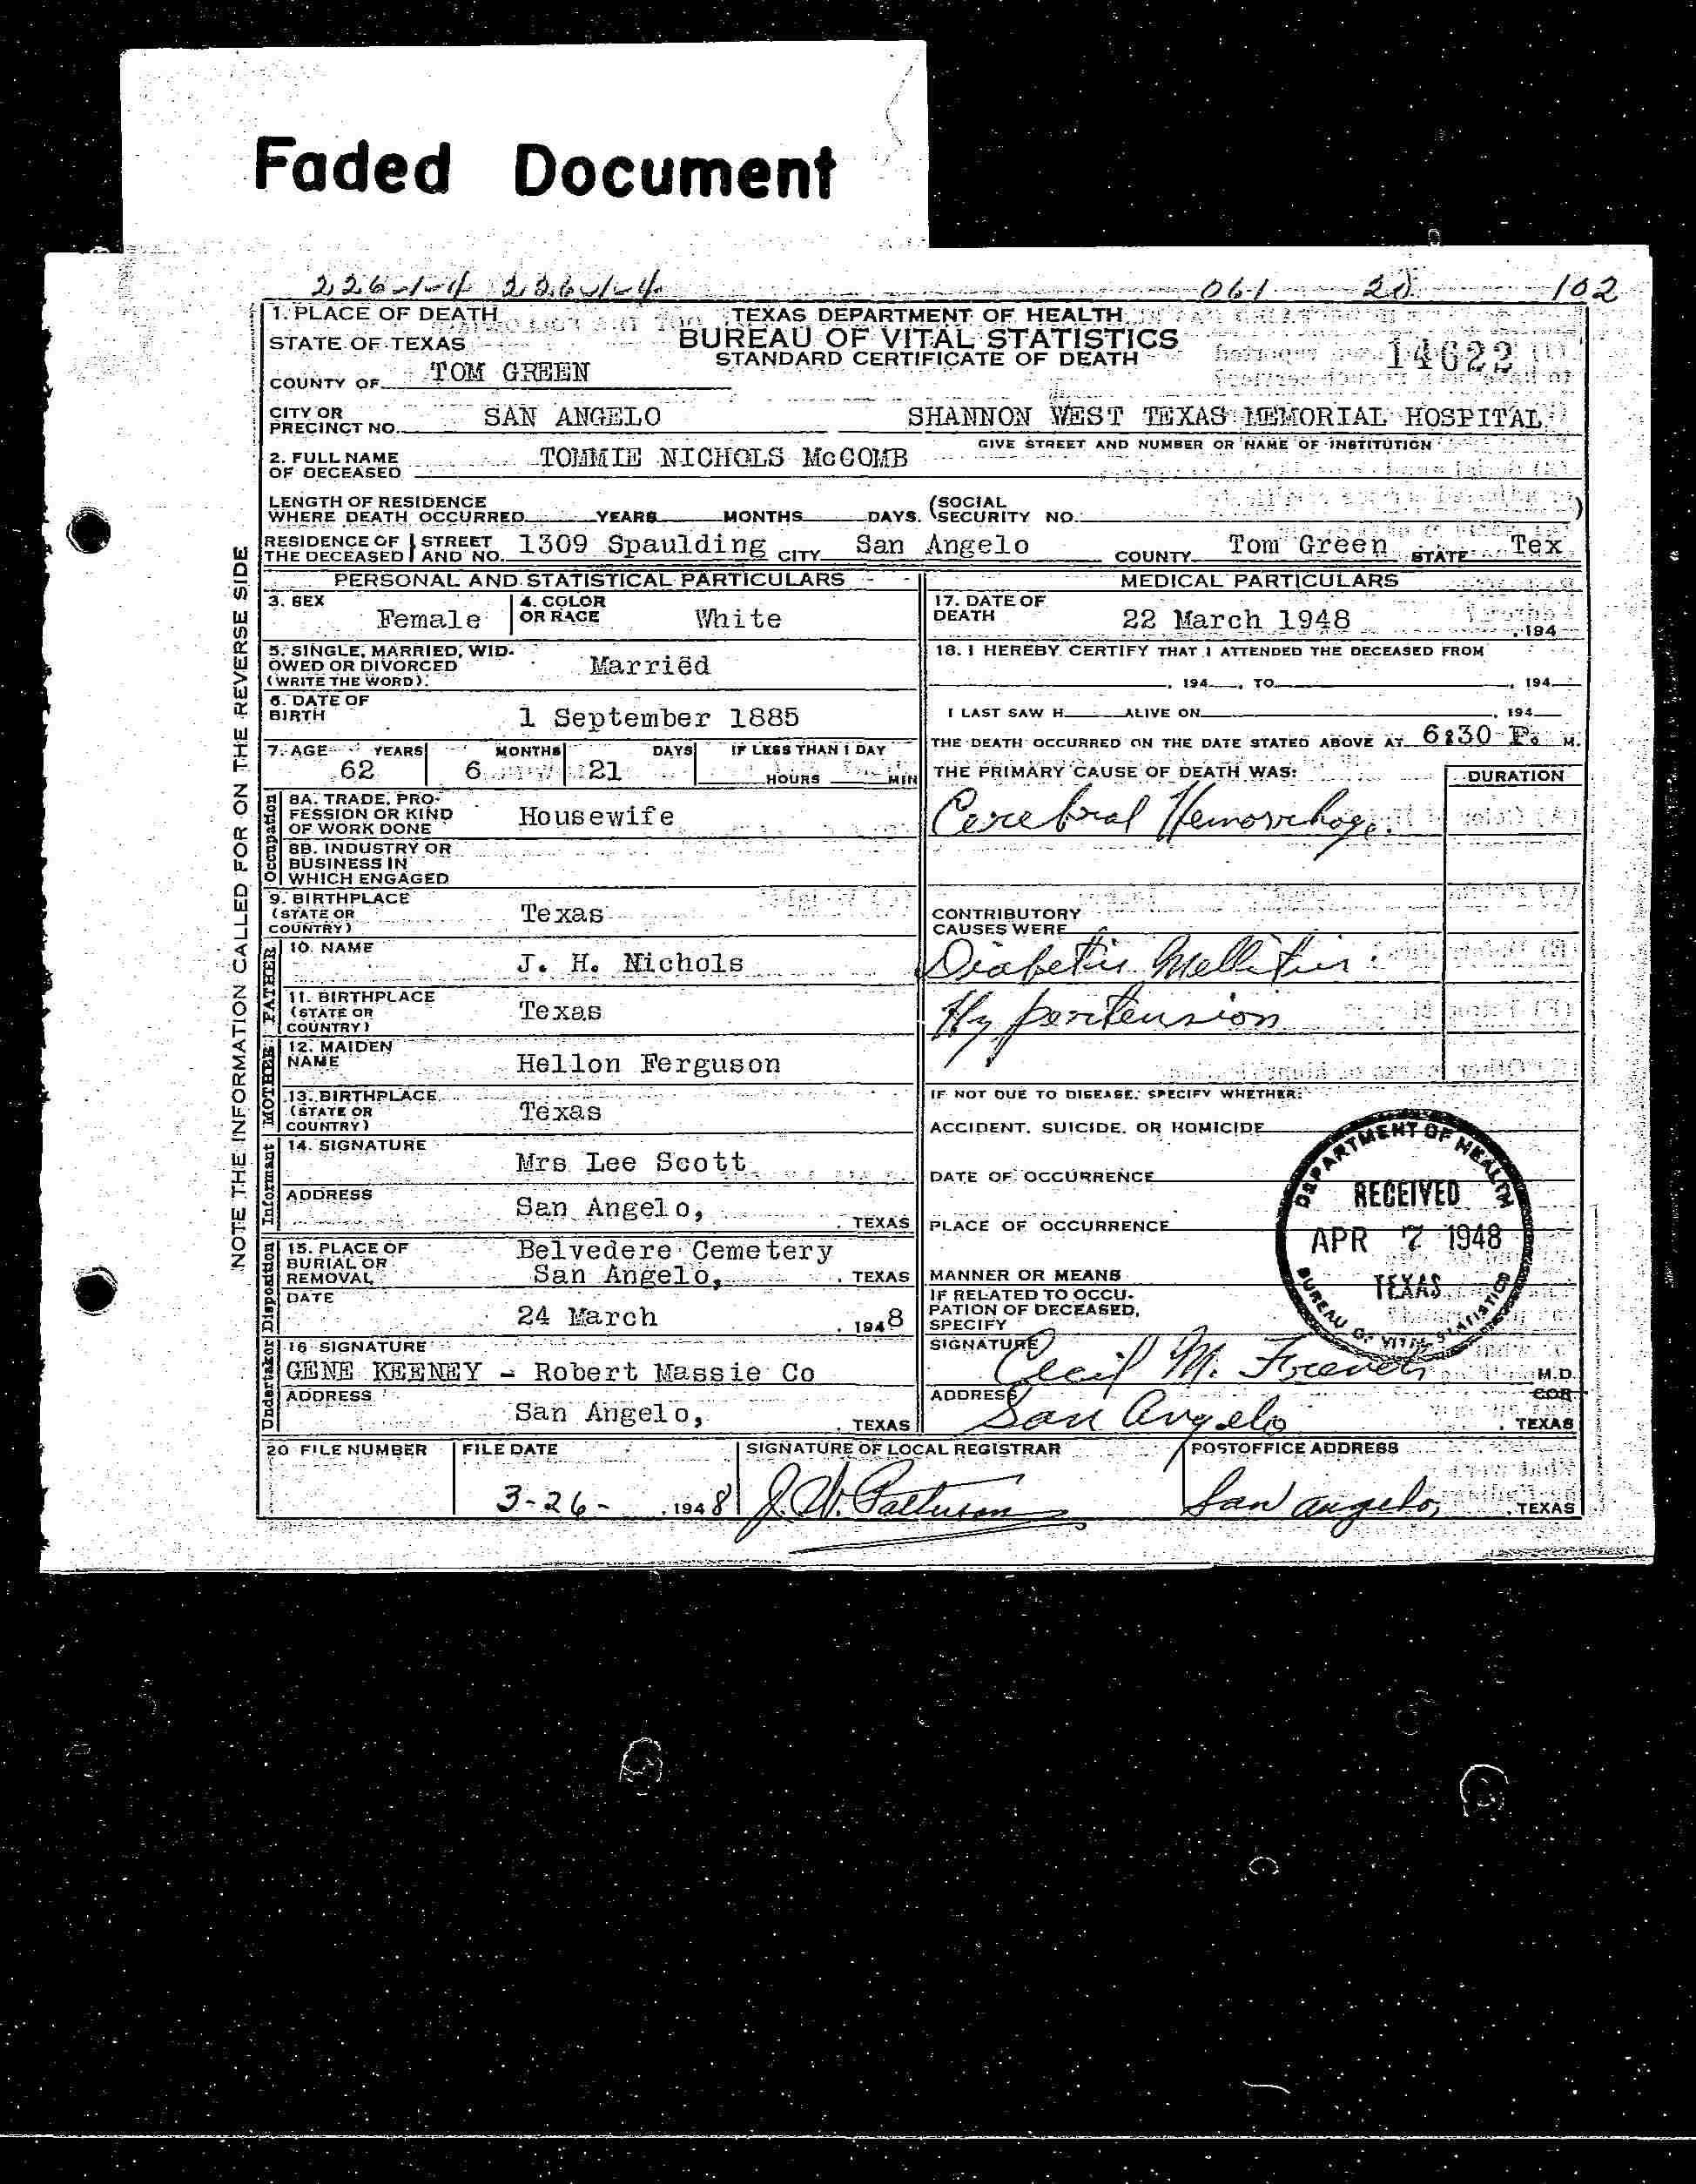 Faded Document
226-1-4 226-1-4 061 20 102
1. PLACE OF DEATH
STATE OF TEXAS
COUNTY OF TOM GREEN
TEXAS DEPARTMENT OF HEALTH
BUREAU OF VITAL STATISTICS
STANDARD CERTIFICATE OF DEATH
14622
CITY OR
PRECINCT NO. SAN ANGELO
SHANNON WEST TEXAS MEMORIAL HOSPITAL
GIVE STREET AND NUMBER OR NAME OF INSTITUTION
2. FULL NAME
OF DECEASED TOMMIE NICHOLS McCOMB
LENGTH OF RESIDENCE
WHERE DEATH OCCURRED YEARS MONTHS DAYS. (SOCIAL SECURITY NO. )
RESIDENCE OF THE DECEASED STREET AND NO. 1309 Spaulding CITY San Angelo COUNTY Tom Green STATE Tex
NOTE THE INFORMATION CALLED FOR ON THE REVERSE SIDE
PERSONAL AND STATISTICAL PARTICULARS
3. SEX Female
4. COLOR OR RACE White
5. SINGLE, MARRIED, WID-
OWED OR DIVORCED
(WRITE THE WORD). Married
6. DATE OF
BIRTH 1 September 1885
7. AGE YEARS MONTHS DAYS IF LESS THAN 1 DAY
62 6 21 HOURS MIN
Occupation
8A. TRADE, PRO-
FESSION OR KIND
OF WORK DONE Housewife
8B. INDUSTRY OR
BUSINESS IN
WHICH ENGAGED
9. BIRTHPLACE
(STATE OR
COUNTRY) Texas
FATHER
10. NAME J. H. Nichols
11. BIRTHPLACE
(STATE OR
COUNTRY) Texas
MOTHER
12. MAIDEN
NAME Hellon Ferguson
13. BIRTHPLACE
(STATE OR
COUNTRY) Texas
Informant
14. SIGNATURE Mrs Lee Scott
ADDRESS San Angelo, TEXAS
Disposition
15. PLACE OF
BURIAL OR
REMOVAL Belvedere Cemetery
San Angelo, . TEXAS
DATE 24 March , 1948
Undertaker
16 SIGNATURE
GENE KEENEY - Robert Massie Co
ADDRESS San Angelo, . TEXAS
MEDICAL PARTICULARS
17. DATE OF
DEATH 22 March 1948 , 194
18. I HEREBY CERTIFY THAT I ATTENDED THE DECEASED FROM
, 194 , TO , 194
I LAST SAW H ALIVE ON , 194
THE DEATH OCCURRED ON THE DATE STATED ABOVE AT 6:30 P. M.
THE PRIMARY CAUSE OF DEATH WAS: DURATION
Cerebral Hemorrhage
CONTRIBUTORY
CAUSES WERE
Diabetis Mellitus
Hypertension
IF NOT DUE TO DISEASE, SPECIFY WHETHER:
ACCIDENT, SUICIDE, OR HOMICIDE
DATE OF OCCURRENCE
PLACE OF OCCURRENCE
MANNER OR MEANS
IF RELATED TO OCCU-
PATION OF DECEASED,
SPECIFY
DEPARTMENT OF HEALTH
RECEIVED
APR 7 1948
TEXAS
BUREAU OF VITAL STATISTICS
SIGNATURE Cecil M. French M.D.
COR.
ADDRESS San Angelo . TEXAS
20 FILE NUMBER
FILE DATE 3-26- , 1948
SIGNATURE OF LOCAL REGISTRAR J. W. Patterson
POSTOFFICE ADDRESS San Angelo, . TEXAS